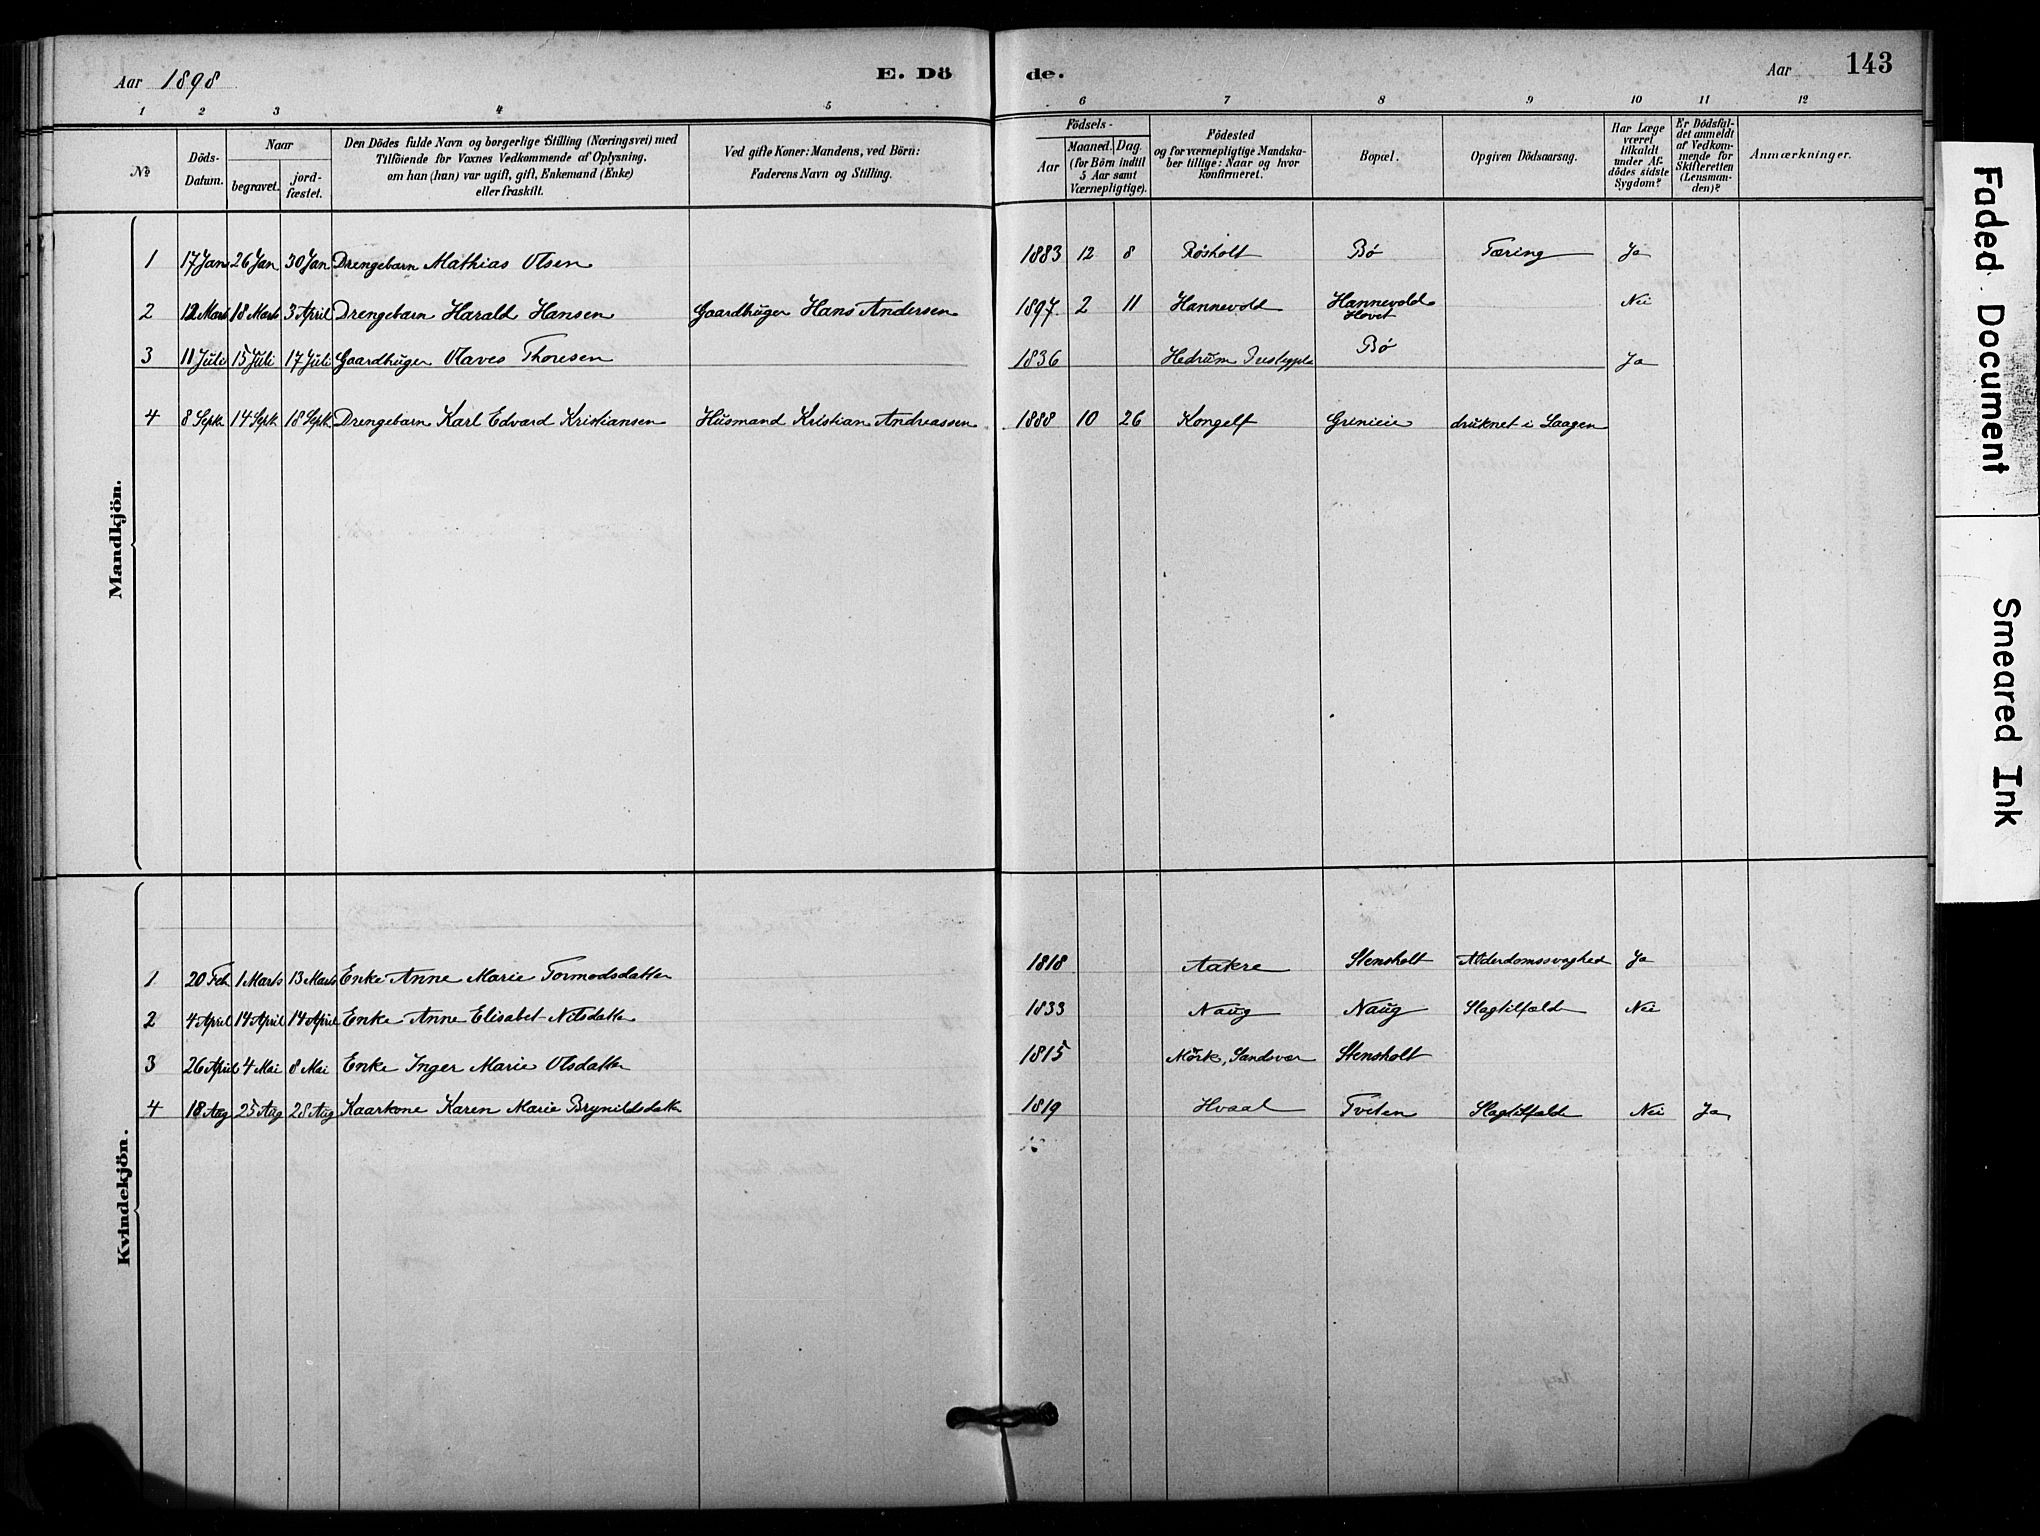 Aar 1898
E. Dö
de.
Aar
143
1 2 3 4 5 6 7 8 9 10 11 12
No
Döds-
Datum.
Naar
begravet.
jord-
fæstet.
Den Dödes fulde Navn og borgerlige Stilling (Næringsvei) med
Tilföiende for Voxnes Vedkommende af Oplysning,
om han (hun) var ugift, gift, Enkemand (Enke)
eller fraskilt.
Ved gifte Koner: Mandens, ved Börn:
Faderens Navn og Stilling.
Födsels-
Aar
Maaned. Dag
(for Börn indtil
5 Aar samt
Værnepligtige).
Födested
og for værnepligtige Mandska-
ber tillige: Naar og hvor
konfirmeret.
Bopæl.
Opgiven Dödsaarsag.
Har Læge
været
tilkaldt
under Af-
dödes sidste
Sygdom?
Er Dödsfal-
det anmeldt
af Vedkom-
mende for
Skifteretten
(Lensman-
den)?
Anmærkninger.
Mandkjön.
1 17 Jan 26 Jan 30 Jan Drengebarn Mathias Olsen 1883 12 8 Røsholt Bø Tæring Ja
2 12 Marts 18 Marts 3 April Drengebarn Harald Hansen Gaardbruger Hans Andersen 1897. 2 11 Hannevold Hannevold Hovet Nei
3 11 Juli 15 Juli 17 Juli Gaardbruger Olaves Thoresen 1836 Hedrum Bø Ja
4 8 Sept 14 Sept 18 Sept Drengebarn Karl Edvard Kristiansen Husmand Kristian Andreassen 1888 10 26 Kongelf Grinieie druknet i Laagen
Kvindekjön.
1 20 Feb 1 Marts 13 Marts Enke Anne Marie Tormodsdatter 1818 Aakre Stensholt Alderdomssvaghed Ja
2 4 April 14 April 14 April Enke Anne Elisabet Nilsdatter 1833 Naug Naug Slagtilfælde Nei
3 26 April 4 Mai 8 Mai Enke Inger Marie Olsdatter 1815 Mörk, Sandsvær Stensholt
4 18 Aug 25 Aug 28 Aug Kaarkone Karen Marie Brynildsdatter 1819 Hvaal Tveten Slagtilfælde Nei Ja
Faded Document
Smeared Ink